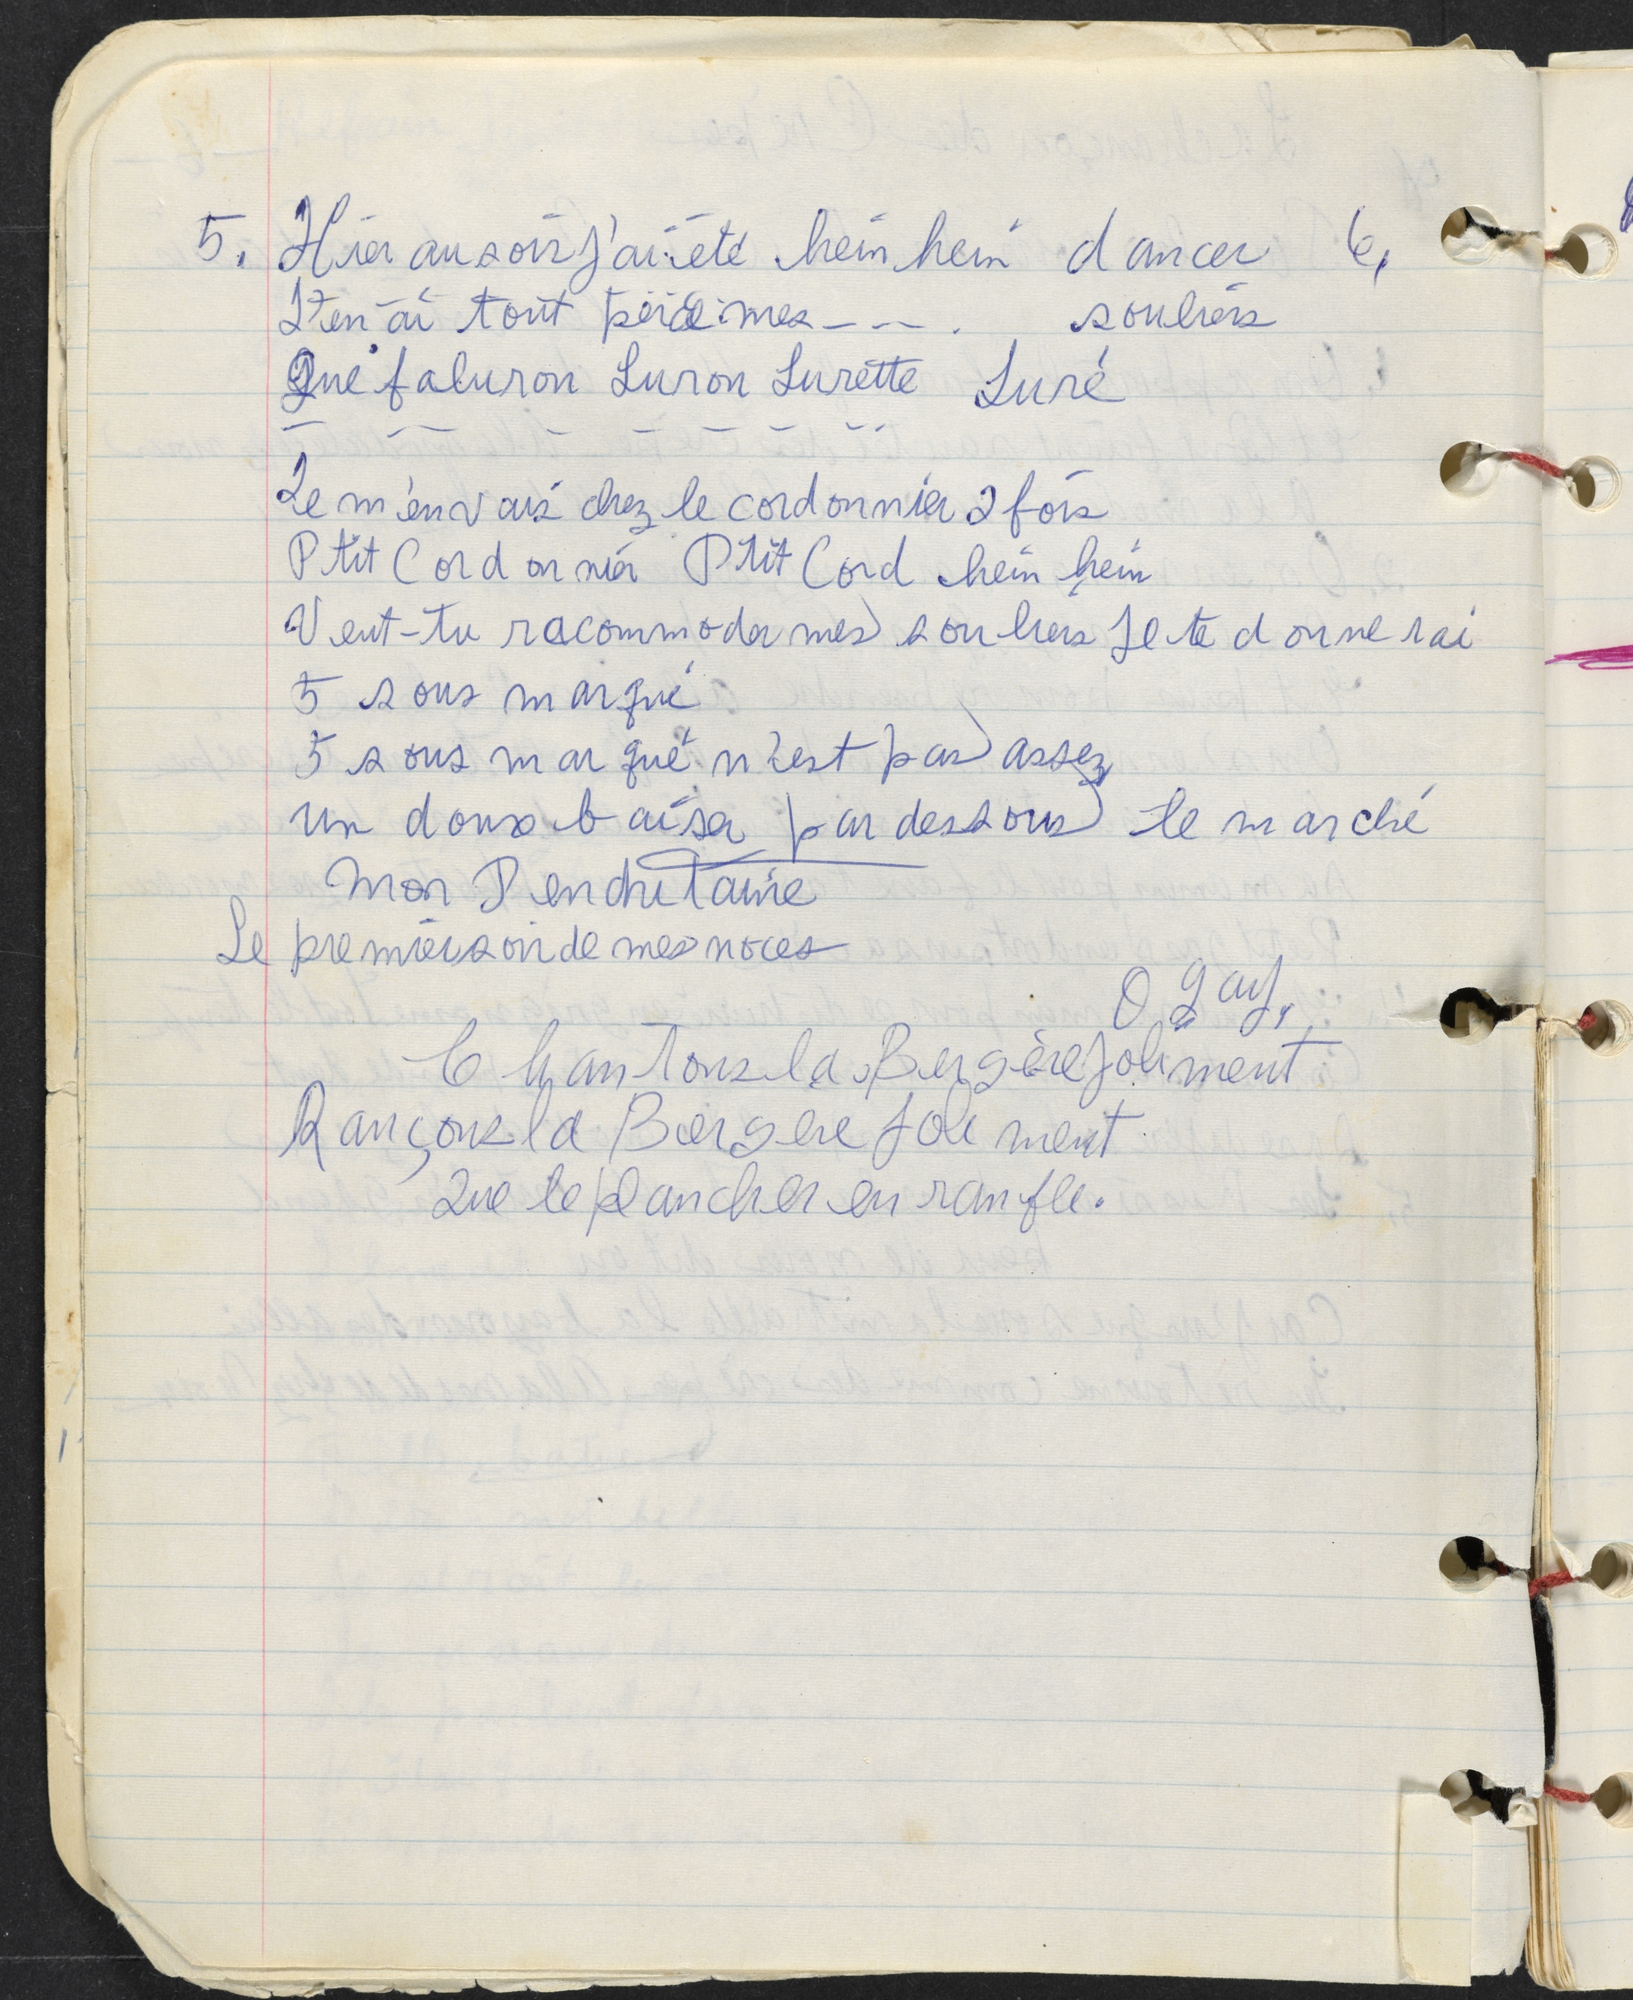 5. Hier au soir j'ai été hein hein dancer 6.
J'en ai tout percé mes - - - . souliers
Que faluron Luron Lurette Luré
Je m'en vais chez le cordonnier 2 fois
P'tit Cordonnier P'tit Cord hein hein
Veut-tu racommoder mes souliers je te donnerai
5 sous marqué
5 sous marqué n'est pas assez
un doux baiser par dessous le marché
Mon
Le premier soir de mes noces
O gay,
Chantons la Bergère joliment
la Bergere joliment
Que le plancher en ranfle.